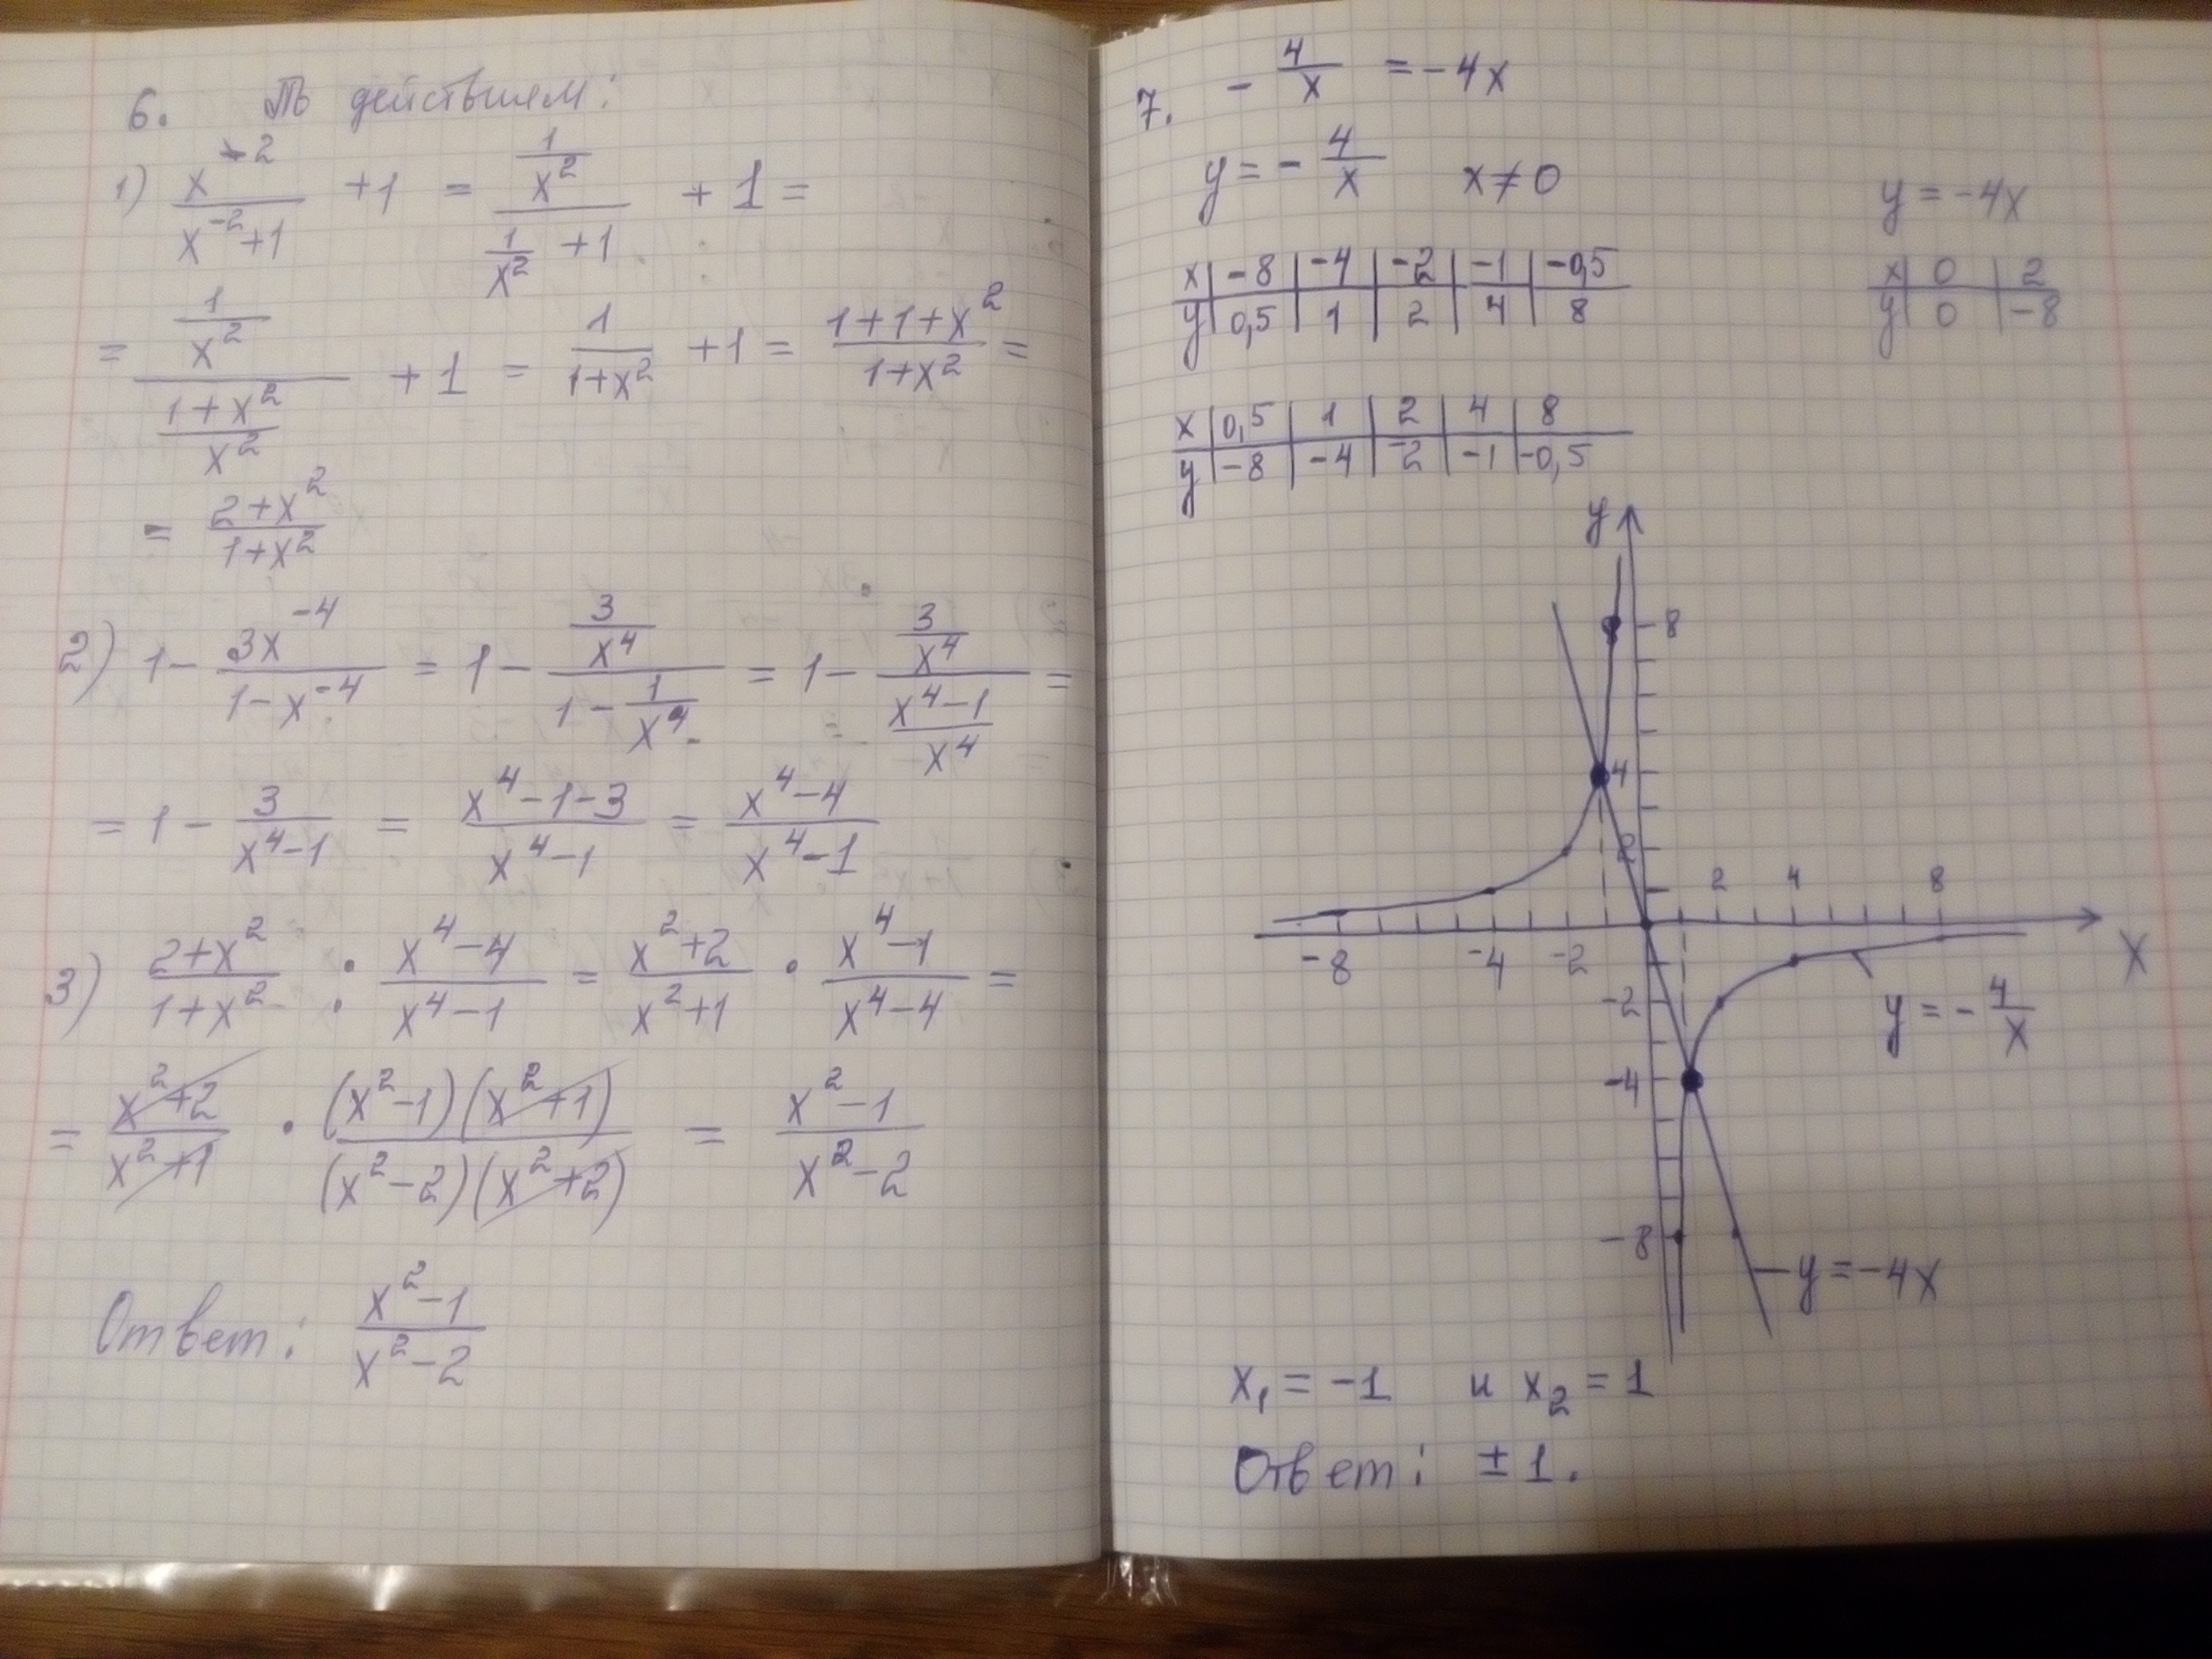 6. По действиям:
1) x^-2/(x^-2+1) +1 = (1/x^2)/(1/x^2 +1) + 1 =
= (1/x^2)/((1+x^2)/x^2) + 1 = 1/(1+x^2) +1 = (1+1+x^2)/(1+x^2) =
= (2+x^2)/(1+x^2)
2) 1 - 3x^-4/(1-x^-4) = 1 - (3/x^4)/(1 - 1/x^4) = 1 - (3/x^4)/((x^4-1)/x^4) =
= 1 - 3/(x^4-1) = (x^4-1-3)/(x^4-1) = (x^4-4)/(x^4-1)
3) (2+x^2)/(1+x^2) : (x^4-4)/(x^4-1) = (x^2+2)/(x^2+1) · (x^4-1)/(x^4-4) =
= (x^2+2)/(x^2+1) · (x^2-1)(x^2+1)/((x^2-2)(x^2+2)) = (x^2-1)/(x^2-2)
Ответ: (x^2-1)/(x^2-2)
7. - 4/x = -4x
y = - 4/x x≠0
x | -8 | -4 | -2 | -1 | -0,5
y | 0,5 | 1 | 2 | 4 | 8
x | 0,5 | 1 | 2 | 4 | 8
y | -8 | -4 | -2 | -1 | -0,5
y = -4x
x | 0 | 2
y | 0 | -8
y
8
4
2
2 4 8
-8 -4 -2
x
-2
y = - 4/x
-4
-8
y = -4x
x₁ = -1 и x₂ = 1
Ответ: ± 1.